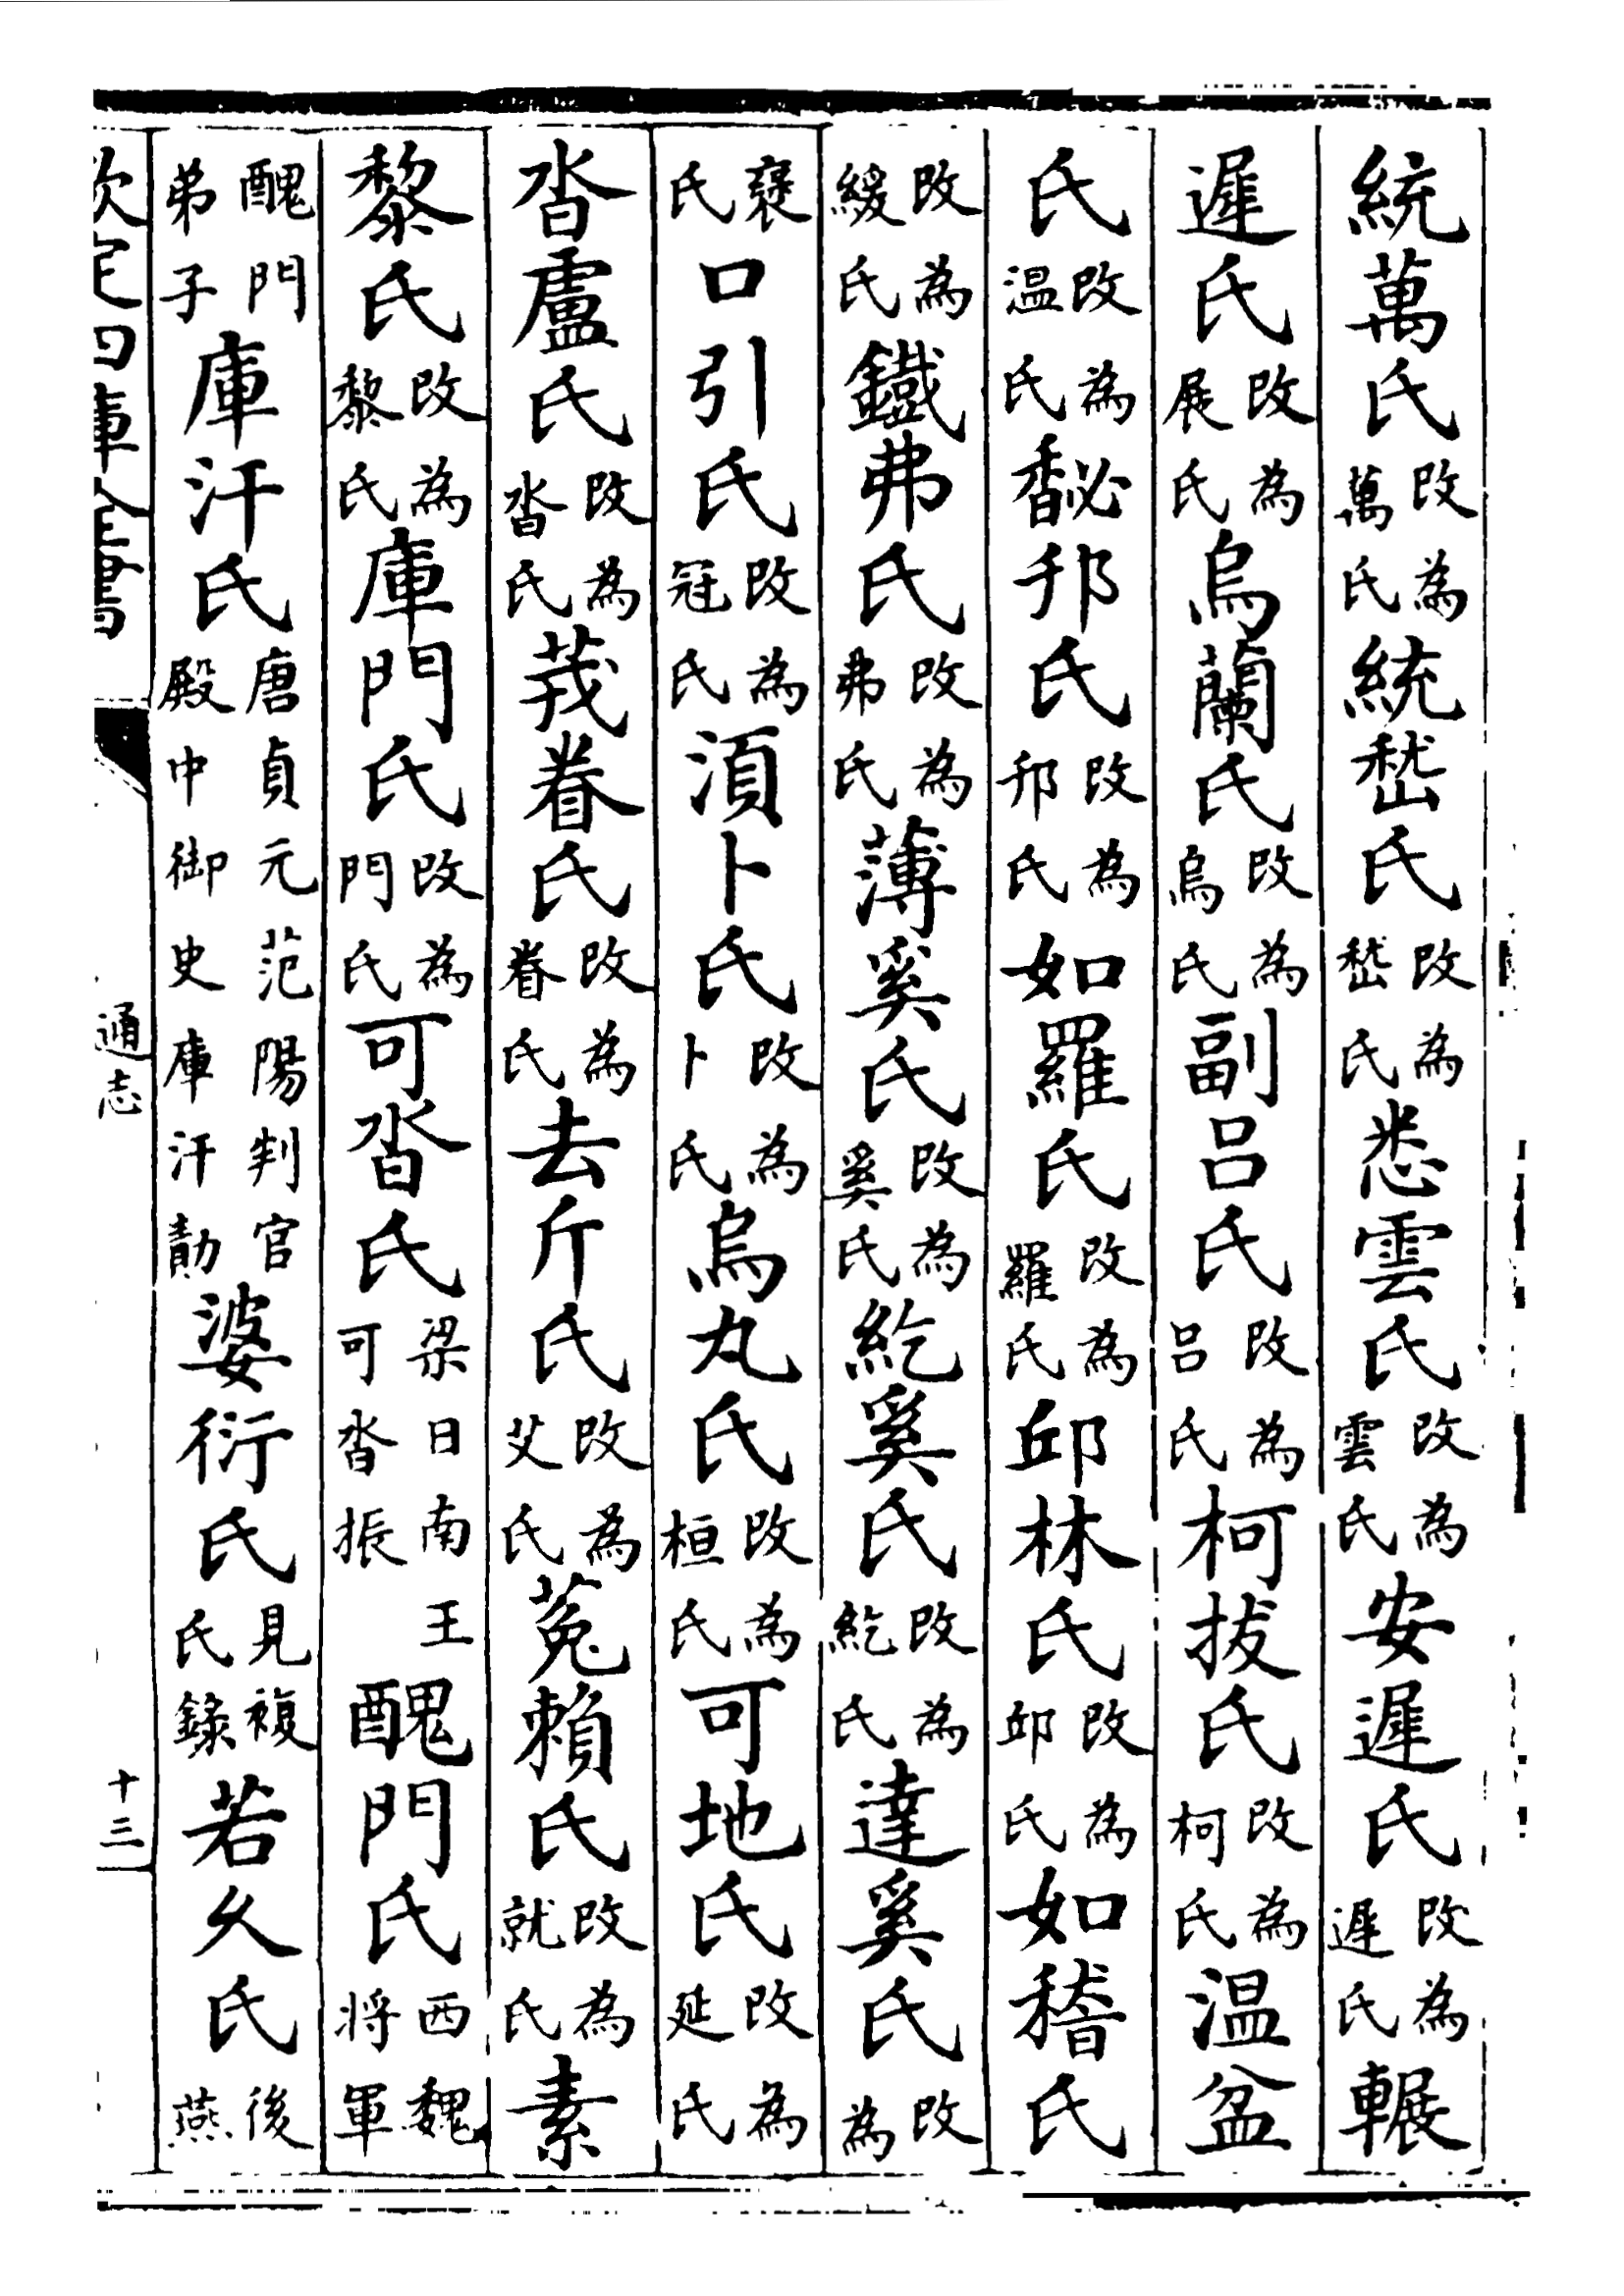 統萬氏改為萬氏統嵆氏改為嵆氏悉雲氏改為雲氏安遲氏改為遲氏輾
遲氏改為展氏烏蘭氏改為烏氏副吕氏改為吕氏柯拔氏改為柯氏温盆
氏改為温氏馝邘氏改為邘氏如羅氏改為羅氏邱林氏改為邱氏如稽氏
改為緩氏鐵弗氏改為弗氏薄奚氏改為奚氏紇奚氏改為紇氏達奚氏改為
襃氏口引氏改為冠氏湏卜氏改為卜氏烏丸氏改為桓氏可地氏改為延氏
沓盧氏改為沓氏茙眷氏改為眷氏去斤氏改為艾氏菟賴氏改為就氏素
黎氏改為黎氏庫門氏改為門氏可沓氏梁日南王可沓振醜門氏西魏將軍
醜門弟子庫汗氏唐貞元范陽判官殿中御史庫汗勣婆衍氏見複氏錄若久氏後燕
欽定四庫全書
通志
十三